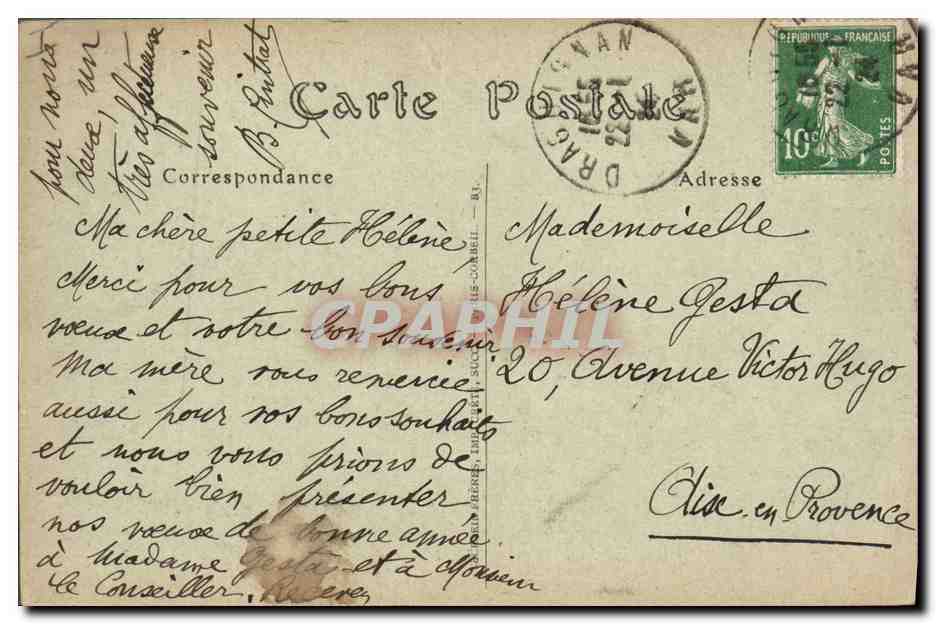 pour nous
deux, un
très affectueux
souvenir
Carte Postale
Correspondance
Adresse
Ma chère petite Hélène,
Merci pour vos bons
vœux et votre bon souvenir
Ma mère vous remercie
aussi pour vos bons souhaits
et nous vous prions de
vouloir bien présenter
nos vœux de bonne année
à Madame Gesta et à Monsieur
le Conseiller.
Mademoiselle
Hélène Gesta
20, Avenue Victor Hugo
Aix-en-Provence
DRAGUIGNAN
VAR
22
RÉPUBLIQUE FRANÇAISE
10c
POSTES
24
FRÈRES,
CORBEIL
CPAPHIL